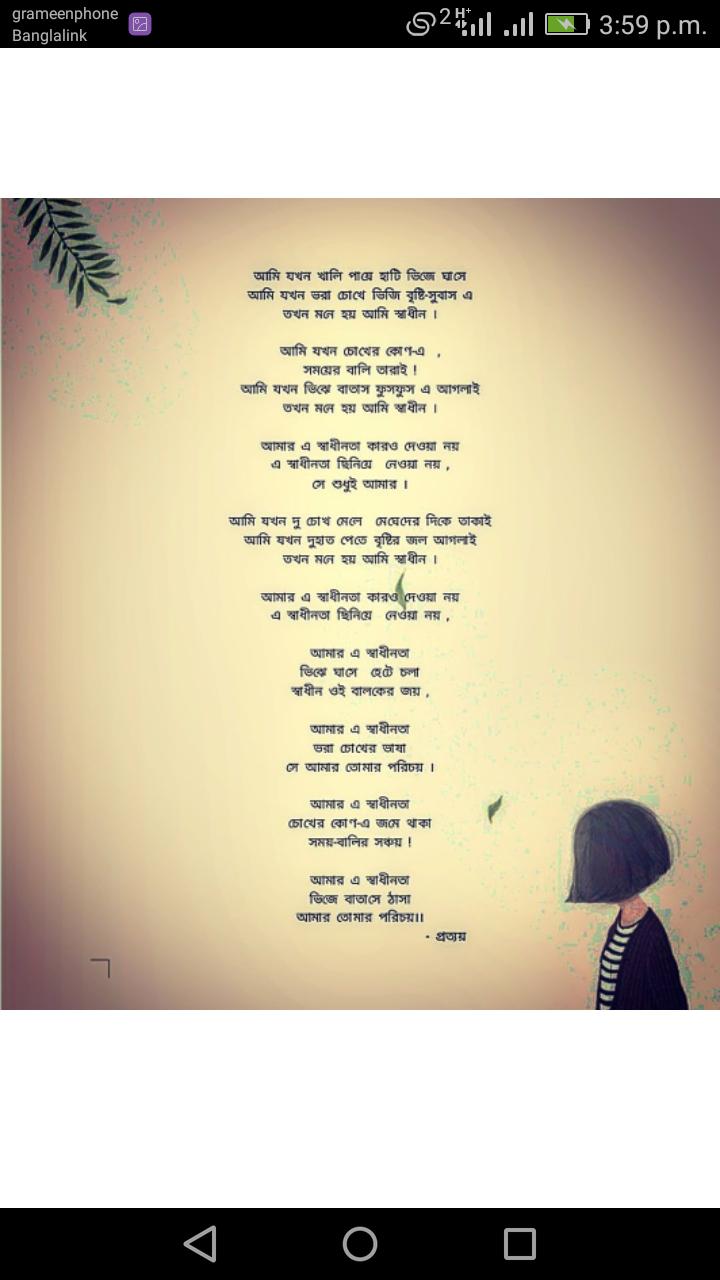 grameenphone
Banglalink
2 H+ 3:59 p.m.
আমি যখন খালি পায়ে হাটি ভিজে ঘাসে
আমি যখন ভরা চোখে ভিজি বৃষ্টি-সুবাস এ
তখন মনে হয় আমি স্বাধীন ।
আমি যখন চোখের কোণ-এ ,
সময়ের বালি তারাই !
আমি যখন ভিঝে বাতাস ফুসফুস এ আগলাই
তখন মনে হয় আমি স্বাধীন ।
আমার এ স্বাধীনতা কারও দেওয়া নয়
এ স্বাধীনতা ছিনিয়ে নেওয়া নয় ,
সে শুধুই আমার ।
আমি যখন দু চোখ মেলে মেঘেদের দিকে তাকাই
আমি যখন দুহাত পেতে বৃষ্টির জল আগলাই
তখন মনে হয় আমি স্বাধীন ।
আমার এ স্বাধীনতা কারও দেওয়া নয়
এ স্বাধীনতা ছিনিয়ে নেওয়া নয় ,
আমার এ স্বাধীনতা
ভিঝে ঘাসে হেটে চলা
স্বাধীন ওই বালকের জয় ,
আমার এ স্বাধীনতা
ভরা চোখের ভাষা
সে আমার তোমার পরিচয় ।
আমার এ স্বাধীনতা
চোখের কোণ-এ জমে থাকা
সময়-বালির সঞ্চয় !
আমার এ স্বাধীনতা
ভিজে বাতাসে ঠাসা
আমার তোমার পরিচয়।।
- প্রত্যয়